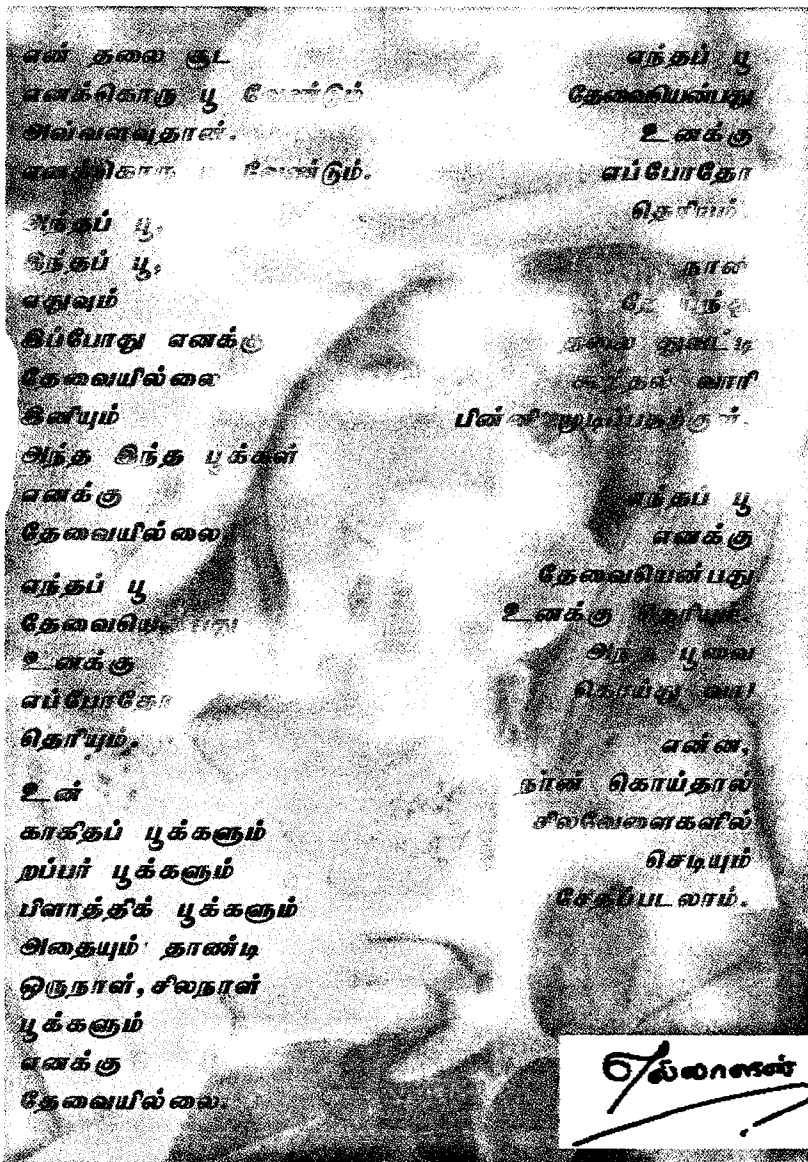 என் தலை சூட
எனக்கொரு பூ வேண்டும்
அவ்வளவுதான்.
எனக்கொரு பூ வேண்டும்.
அந்தப் பூ,
இந்தப் பூ,
எதுவும்
இப்போது எனக்கு
தேவையில்லை
இனியும்
அந்த இந்த பூக்கள்
எனக்கு
தேவையில்லை
எந்தப் பூ
தேவையென்பது
உனக்கு
எப்போதோ
தெரியும்.
உன்
காகிதப் பூக்களும்
றப்பர் பூக்களும்
பிளாத்திக் பூக்களும்
அதையும் தாண்டி
ஒருநாள், சிலநாள்
பூக்களும்
எனக்கு
தேவையில்லை.
எந்தப் பூ
தேவையென்பது
உனக்கு
எப்போதோ
தெரியும்.
நான்
துவட்டி
கூந்தல் வாரி
பின்னிமுடிப்பதற்குள்.
எந்தப் பூ
எனக்கு
தேவையென்பது
உனக்கு தெரியும்.
அந்த பூவை
கொய்து வா!
என்ன,
நான் கொய்தால்
சிலவேளைகளில்
செடியும்
சேதிப்படலாம்.
எல்லாளன்